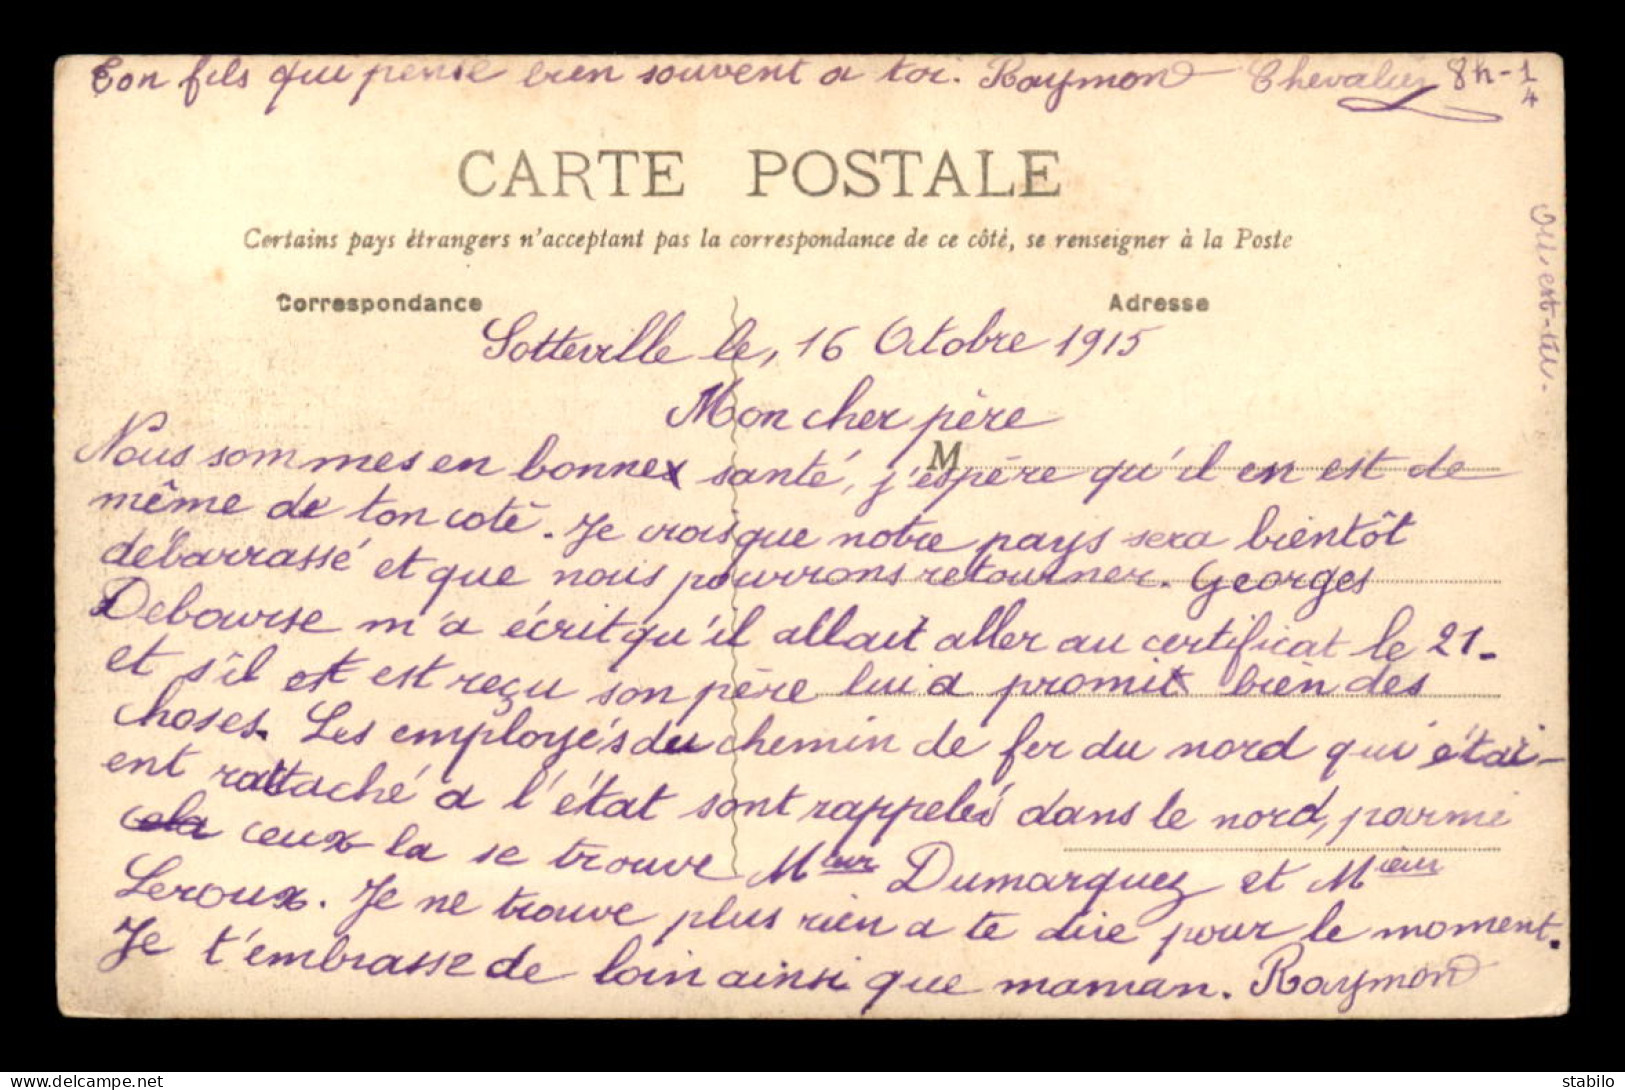 Ton fils qui pense bien souvent a toi. Raymond Chevalier 8h-1/4
CARTE POSTALE
Certains pays étrangers n'acceptant pas la correspondance de ce côté, se renseigner à la Poste
Correspondance Adresse
Sotteville le, 16 Octobre 1915
Mon cher père
M
Nous sommes en bonne santé, j'espère qu'il en est de
même de ton coté. Je crois que notre pays sera bientôt
débarrassé et que nous pourrons retourner. Georges
Debourse m'a écrit qu'il allait aller au certificat le 21.
et s'il est est reçu son père lui a promit bien des
choses. Les employés du chemin de fer du nord qui étai-
ent rattaché a l'état sont rappelés dans le nord, parmi
cela ceux la se trouve Mieur Dumarquez et Mieur
Leroux. Je ne trouve plus rien a te dire pour le moment.
Je t'embrasse de loin ainsi que maman. Raymond
Où est-tu.
delcampe.net
stabilo